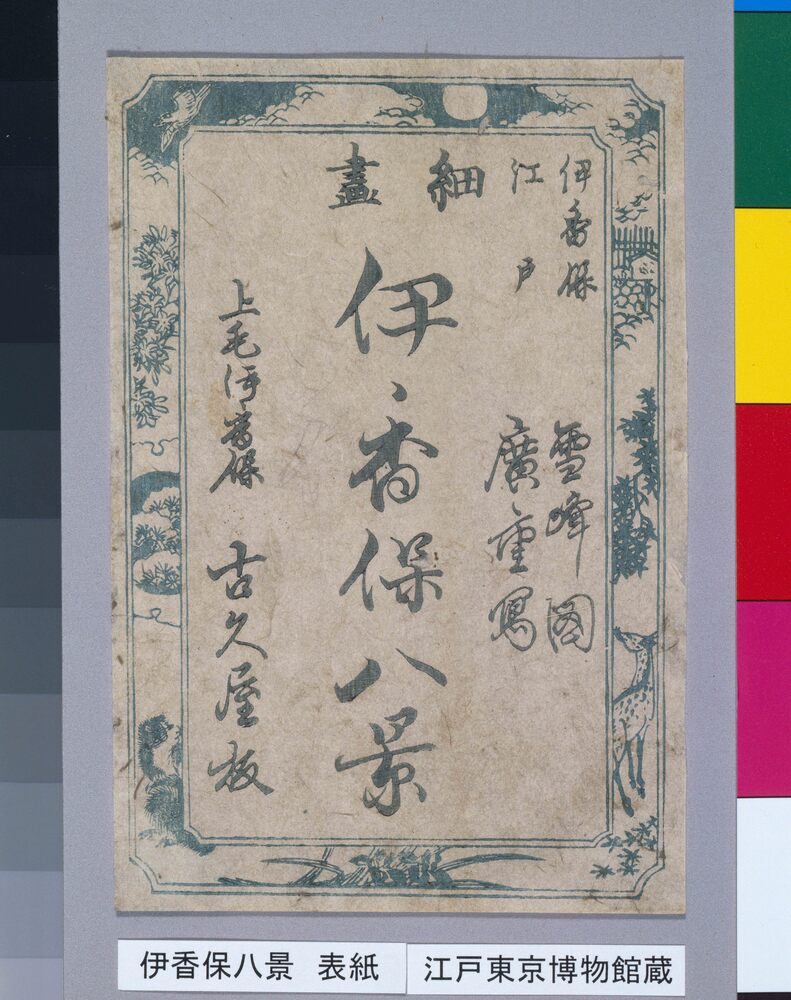 伊香保 雪峰図
江戸 廣重寫
細畫
伊香保八景
上毛伊香保 古久屋板
伊香保八景 表紙
江戸東京博物館蔵